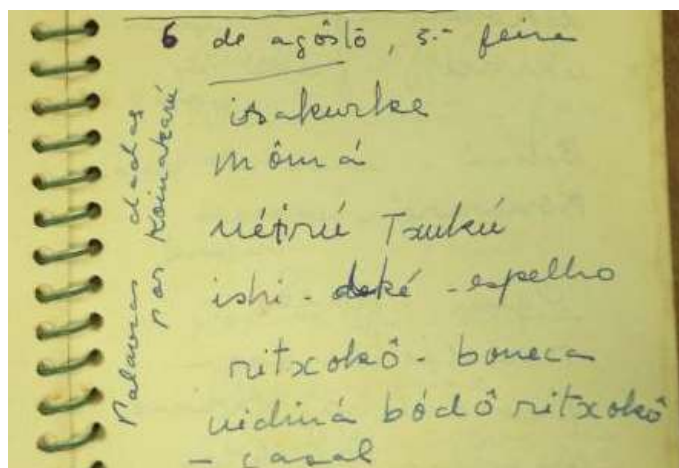 6 de agôsto, 5.- feira
Palavras dadas
por Koinakarú
isakurke
mômá
ishi - doké - espelho
ritxokô - boneca
vidiná bódô ritxokô
- casal